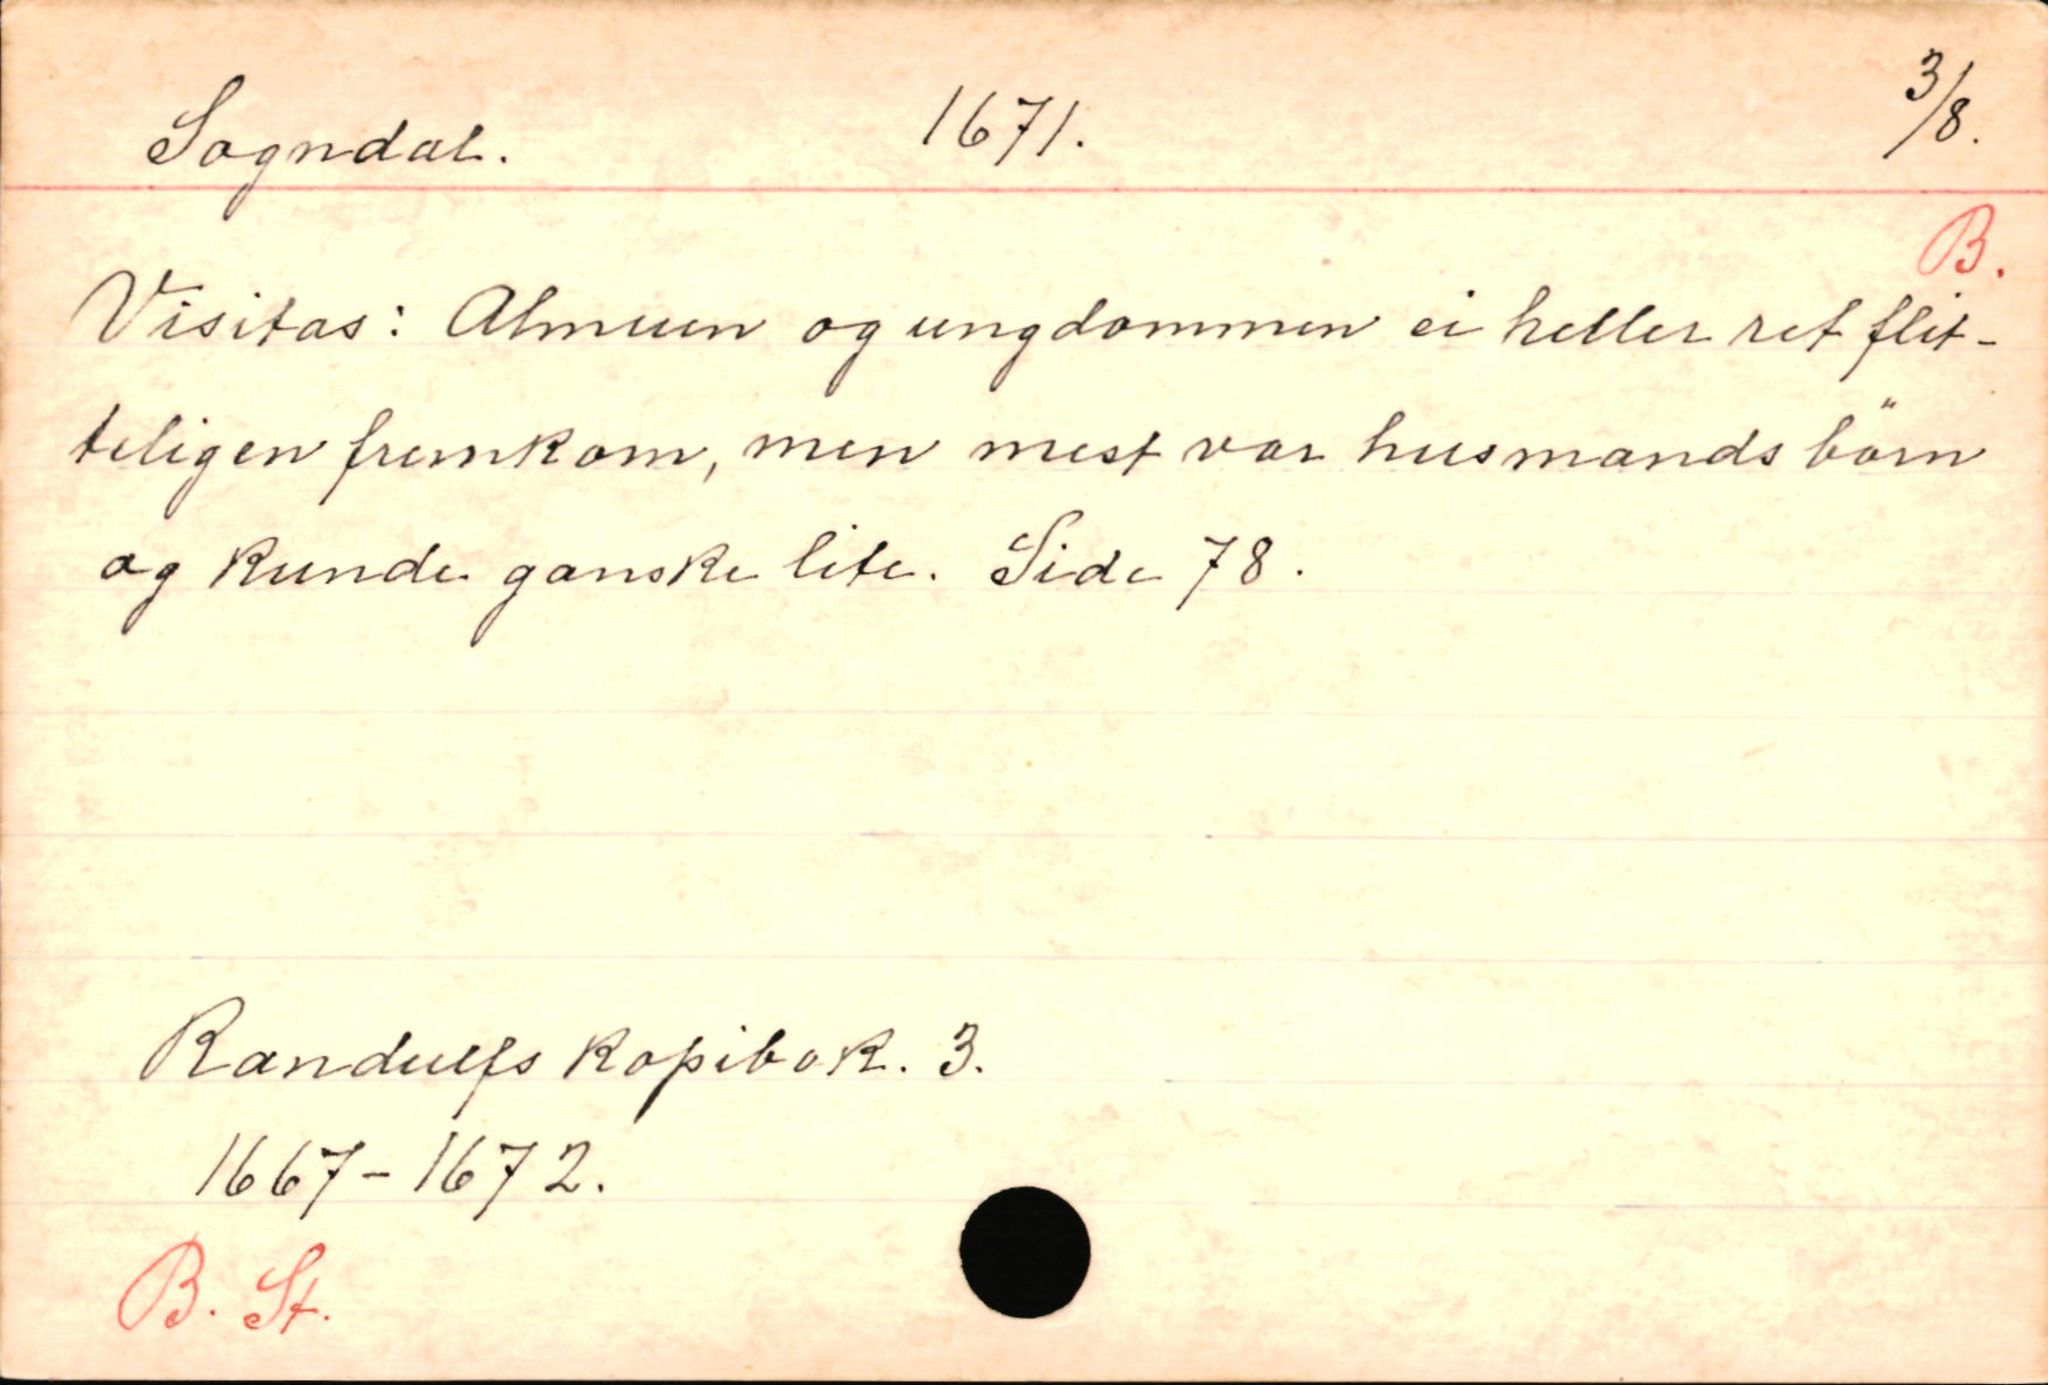 Sogndal. 1671. 3/8.
B.
Visitas: Almuen og ungdommen ei heller ret flit-
teligen fremkom, men mest var husmands börn
og kunde ganske lite. Side 78.
Randulfs kopibok. 3.
1667-1672.
B. St.